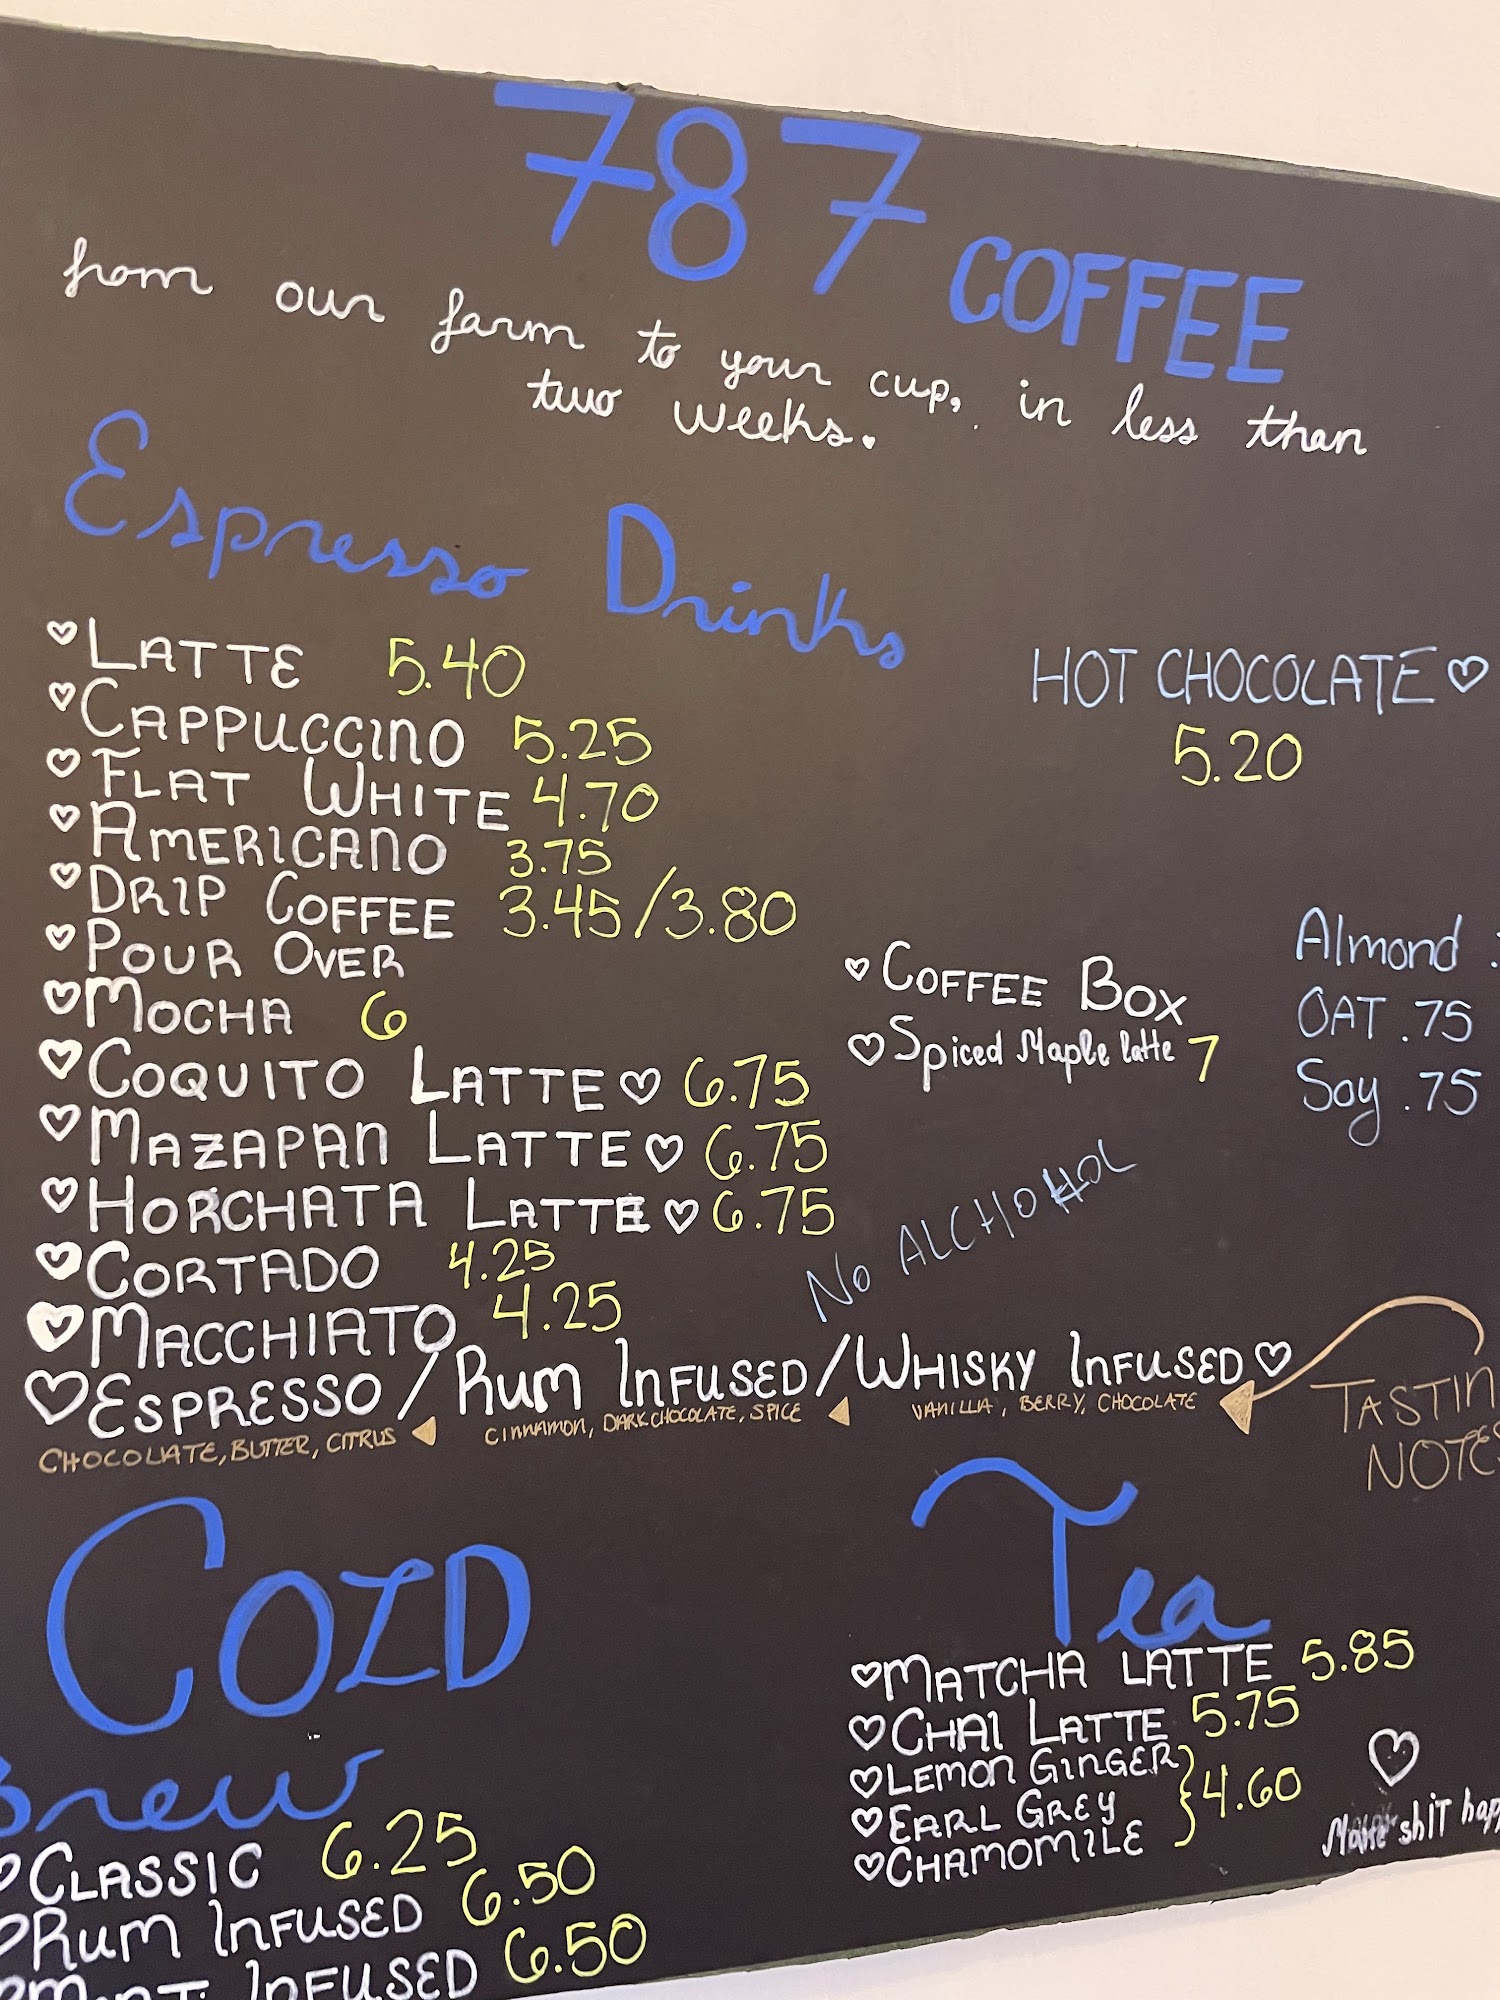 787 COFFEE
from our farm to your cup, in less than
two weeks.
Espresso Drinks
LATTE 5.40
CAPPUCCINO 5.25
FLAT WHITE 4.70
AMERICANO 3.75
DRIP COFFEE 3.45/3.80
POUR OVER
MOCHA 6
COQUITO LATTE 6.75
MAZAPAN LATTE 6.75
HORCHATA LATTE 6.75
CORTADO 4.25
MACCHIATO 4.25
ESPRESSO/RUM INFUSED/WHISKY INFUSED
CHOCOLATE, BUTTER, CITRUS CINNAMON, DARK CHOCOLATE, SPICE VANILLA, BERRY, CHOCOLATE
HOT CHOCOLATE
5.20
COFFEE BOX
Spiced Maple latte 7
Almond
OAT .75
Soy .75
NO ALCHOHOL
TASTIN
NOTES
COLD
Brew
CLASSIC 6.25
RUM INFUSED 6.50
INFUSED 6.50
Tea
MATCHA LATTE 5.85
CHAI LATTE 5.75
LEMON GINGER
EARL GREY 4.60
CHAMOMILE
Make shit happ